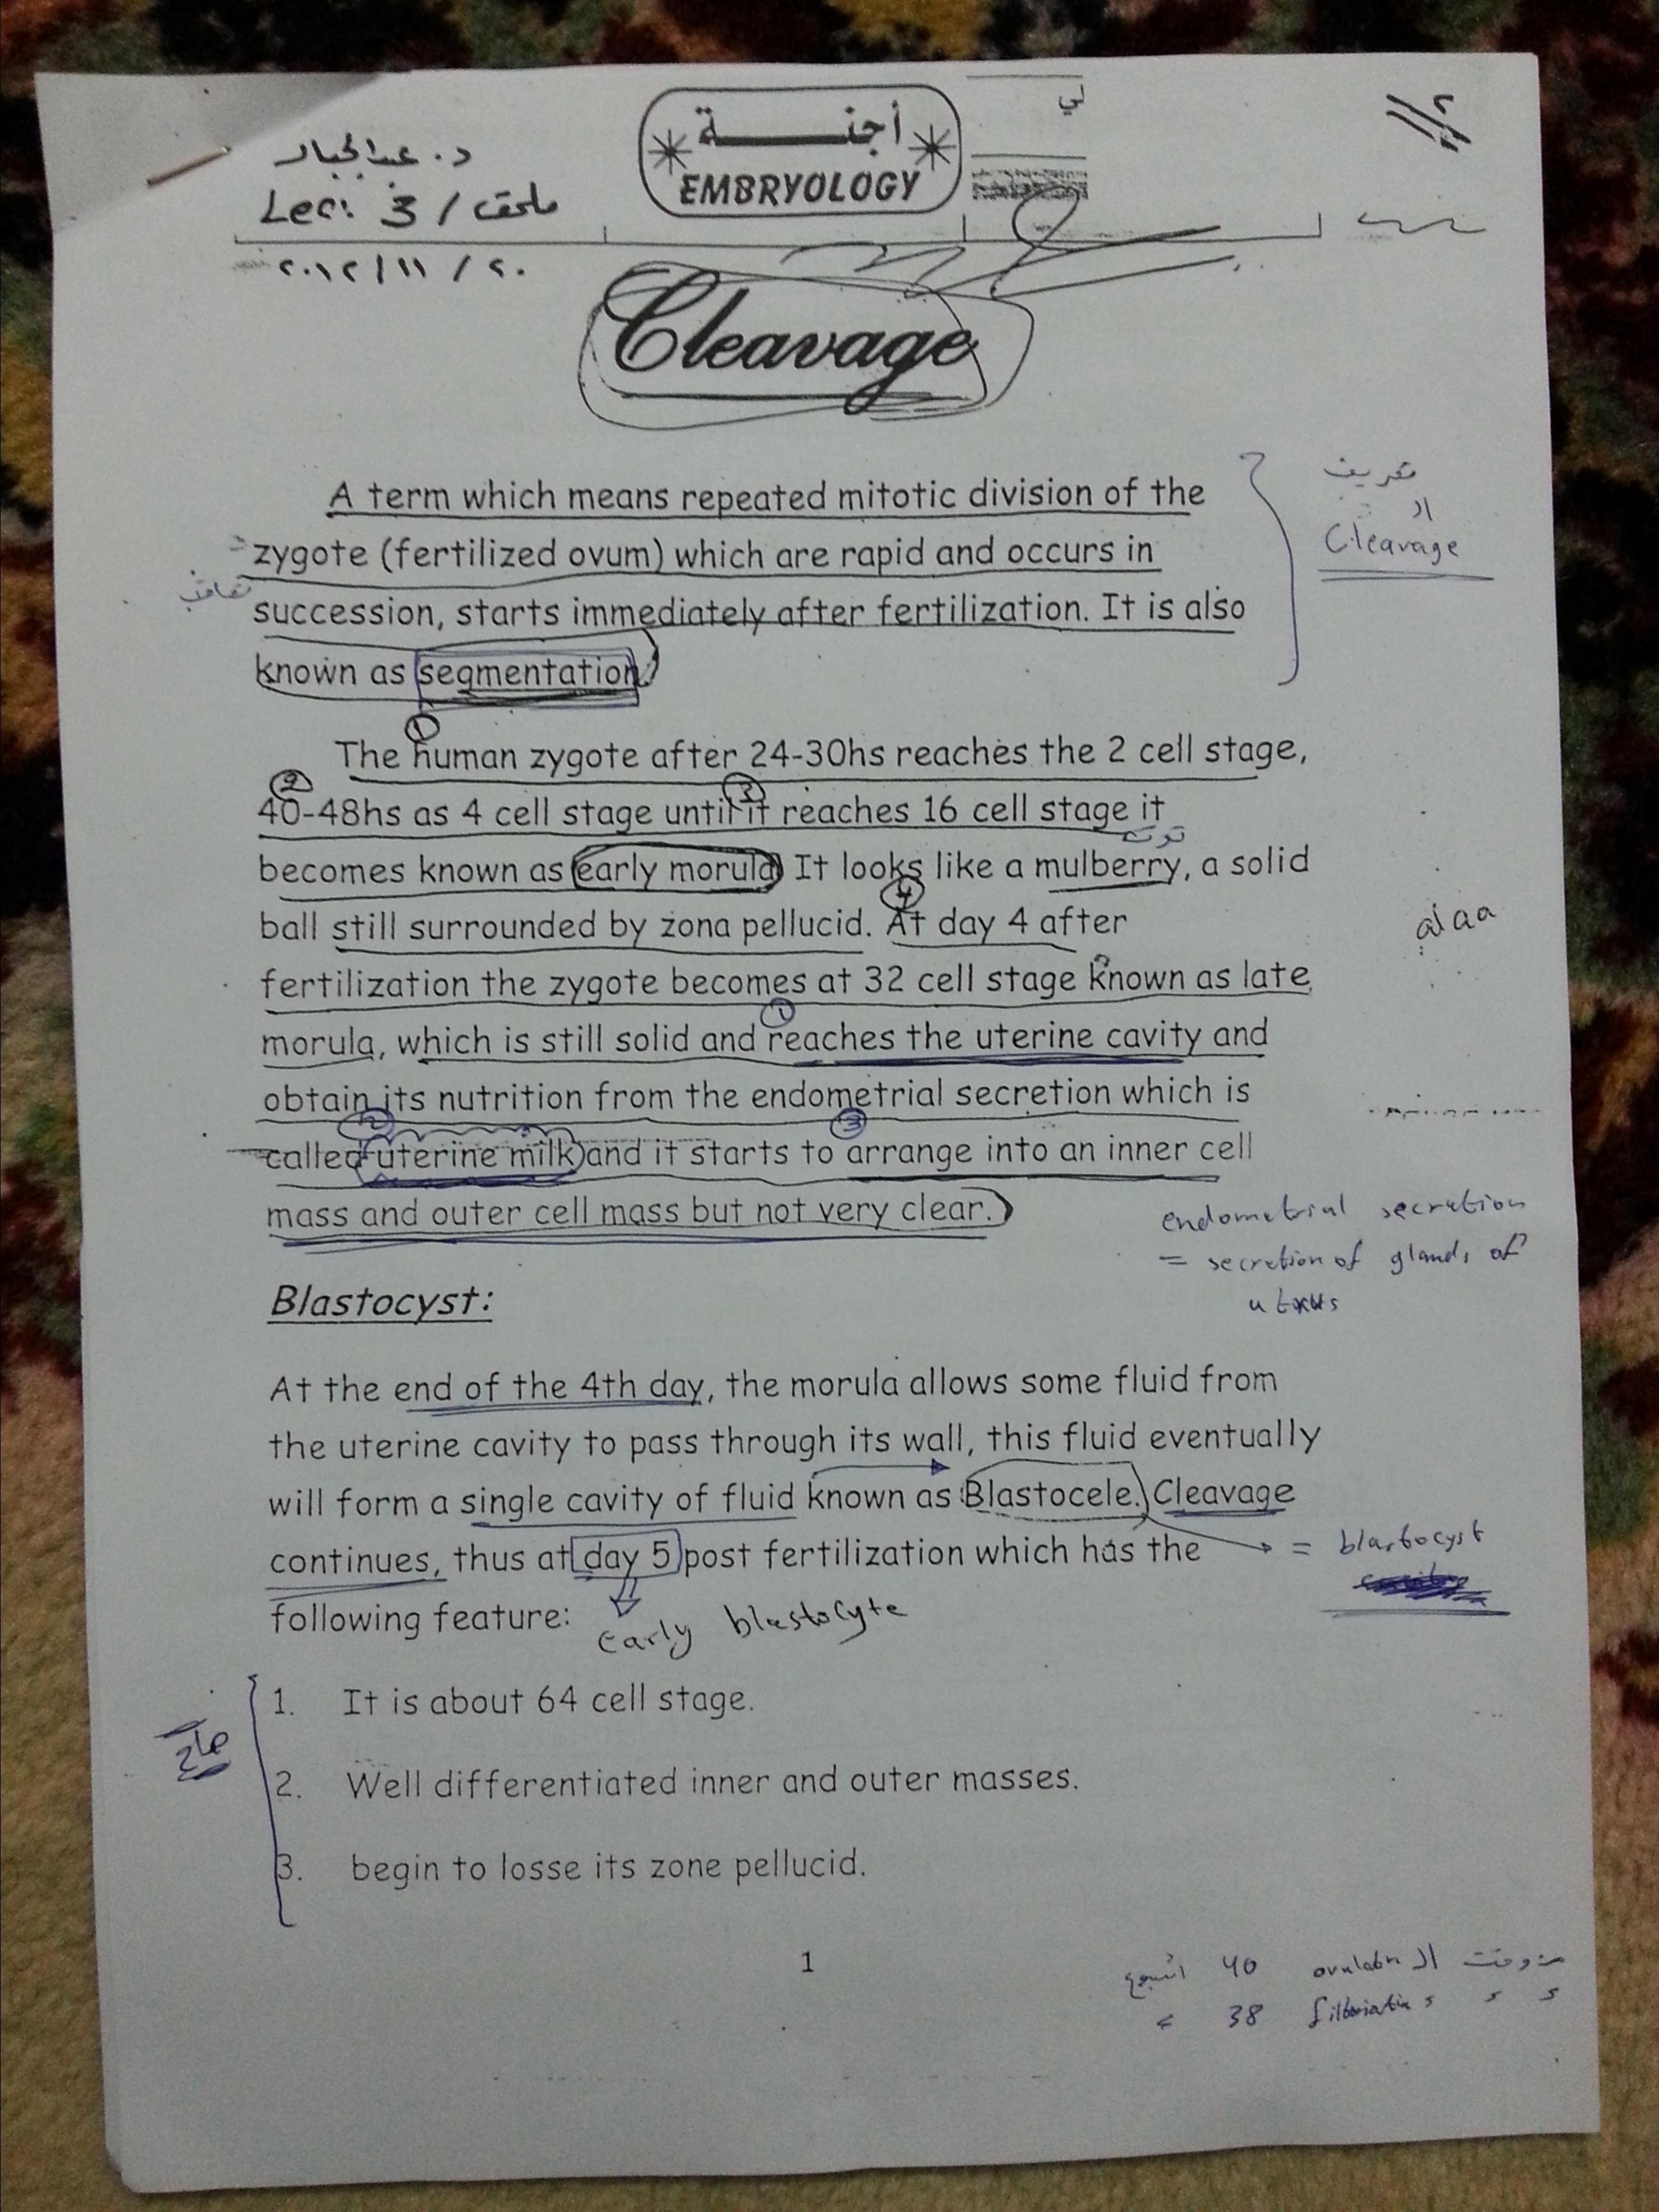 د. عبدالجبار
Lec: 3 / ملحق
٢٠١٢ / ١١ / ٢٠
أجنــــــة
EMBRYOLOGY
لي
Cleavage
A term which means repeated mitotic division of the
zygote (fertilized ovum) which are rapid and occurs in
succession, starts immediately after fertilization. It is also
known as segmentation
تعريف
الـ
Cleavage
تعاقب
1
The human zygote after 24-30hs reaches the 2 cell stage,
2 3
40-48hs as 4 cell stage until it reaches 16 cell stage it
توت
becomes known as early morula. It looks like a mulberry, a solid
4
ball still surrounded by zona pellucid. At day 4 after
alaa
fertilization the zygote becomes at 32 cell stage known as late
1
morula, which is still solid and reaches the uterine cavity and
obtain its nutrition from the endometrial secretion which is
2 3
called uterine milk and it starts to arrange into an inner cell
mass and outer cell mass but not very clear.
endometrial secretion
= secretion of glands of
uterus
Blastocyst:
At the end of the 4th day, the morula allows some fluid from
the uterine cavity to pass through its wall, this fluid eventually
will form a single cavity of fluid known as Blastocele. Cleavage
continues, thus at day 5 post fertilization which has the
= blastocyst
following feature:
early blastocyte
1. It is about 64 cell stage.
2. Well differentiated inner and outer masses.
3. begin to losse its zone pellucid.
1
من وقت الـ ovulation 40 اسبوع
38